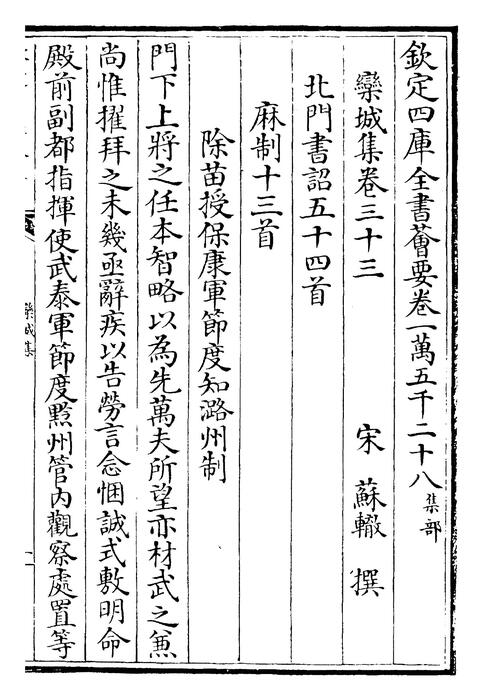 欽定四庫全書薈要卷一萬五千二十八集部
欒城集卷三十三 宋 蘇轍 撰
北門書詔五十四首
麻制十三首
除苗授保康軍節度知潞州制
門下上將之任本智略以為先萬夫所望亦材武之兼
尚惟擢拜之未幾亟辭疾以告勞言念悃誠式敷明命
殿前副都指揮使武泰軍節度黔州管內觀察處置等
欒城集